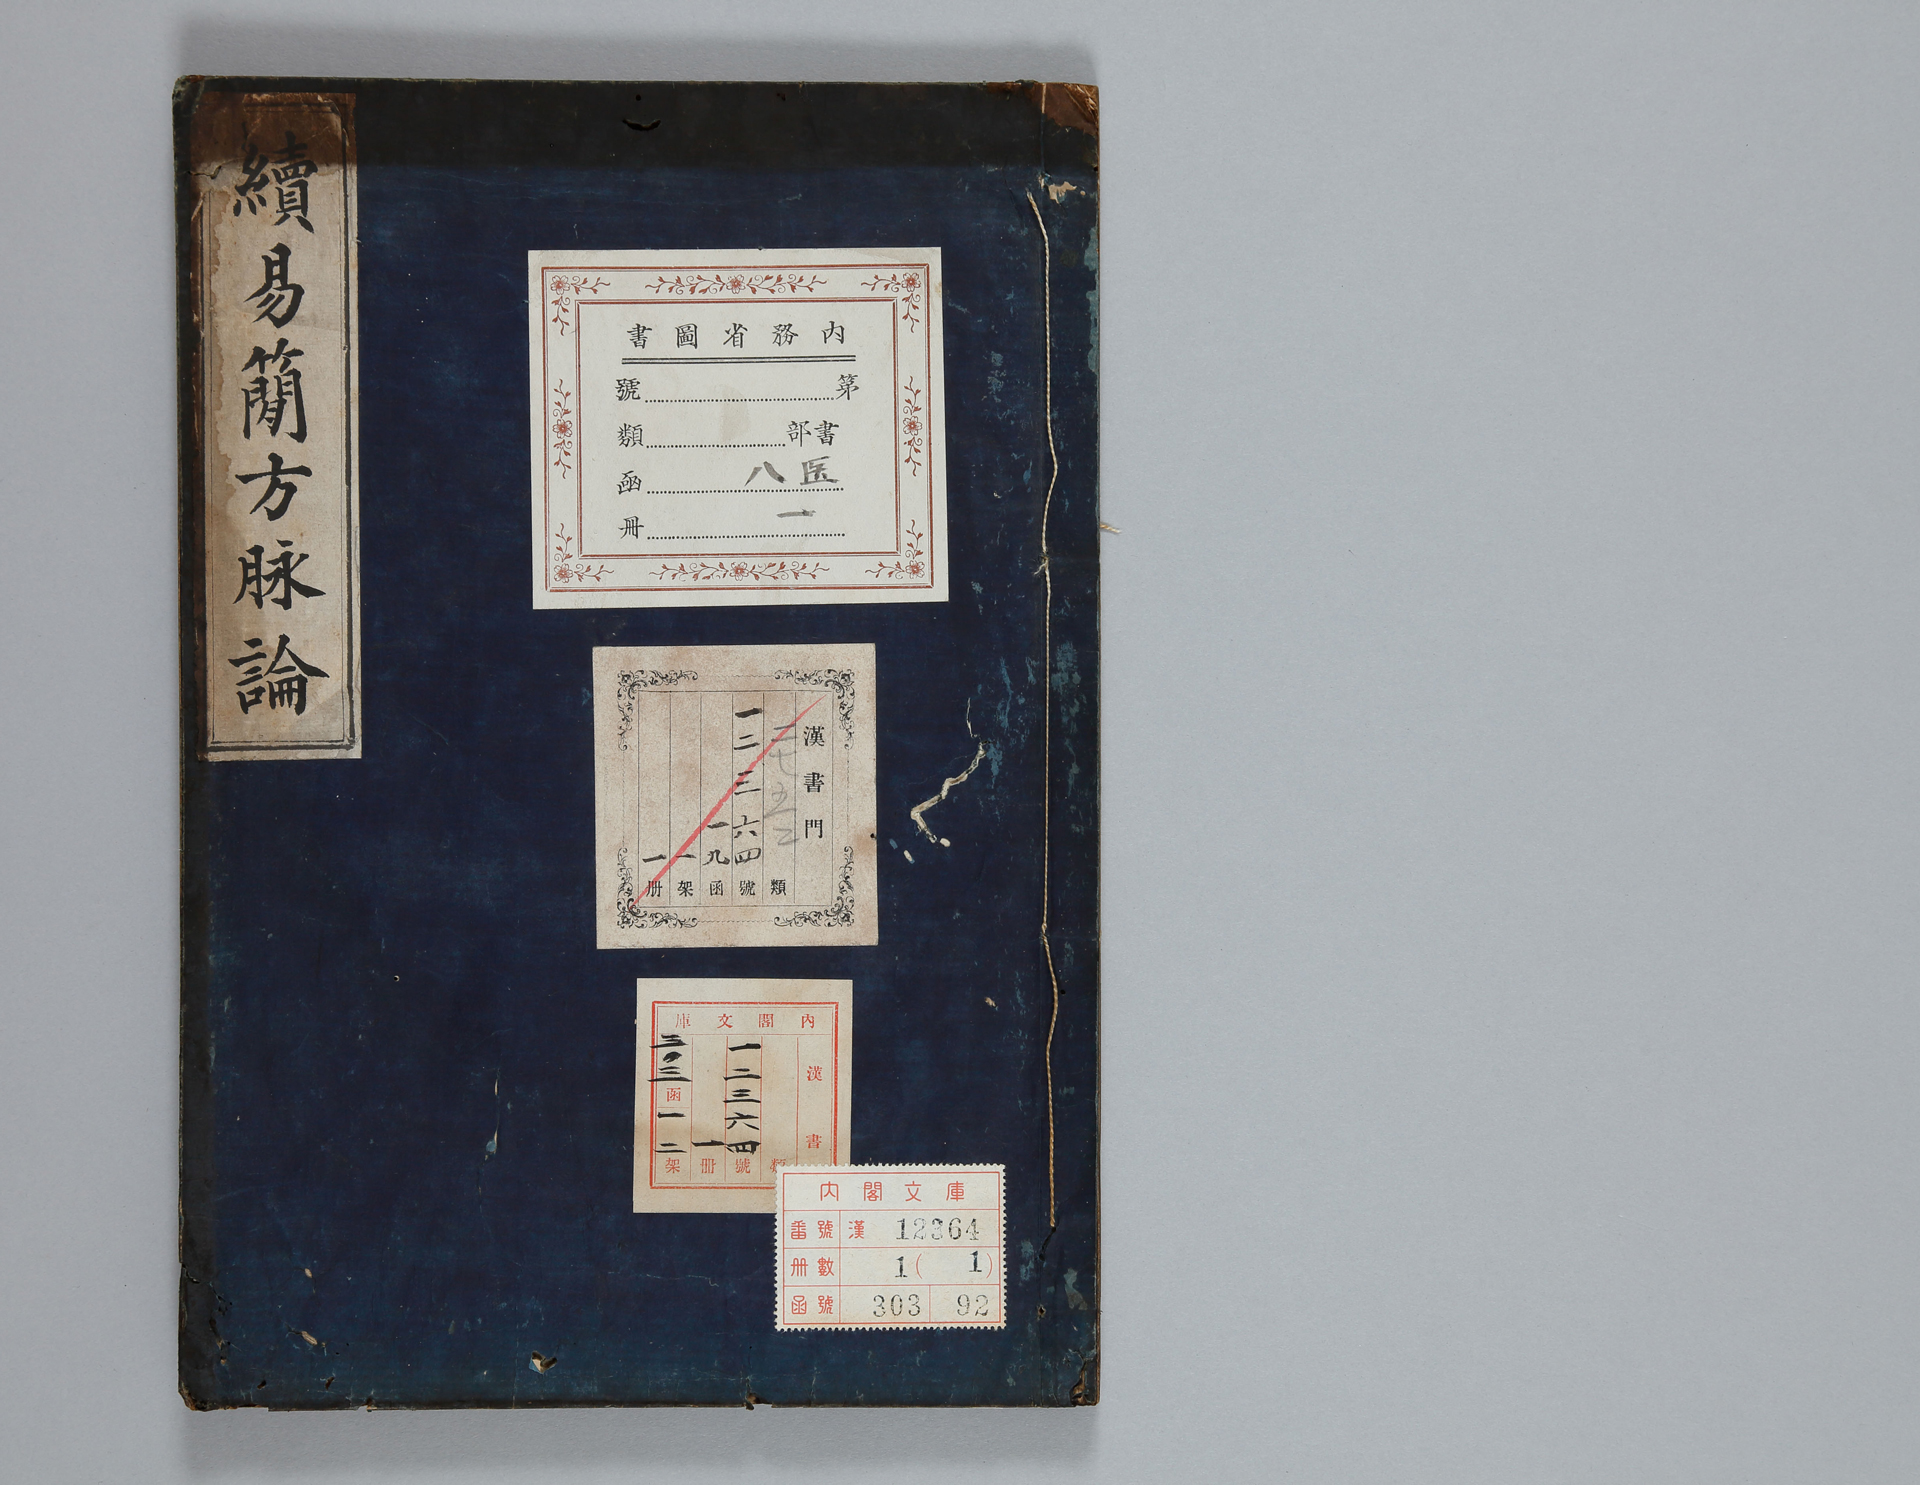 續易簡方脉論
内務省圖書
第號
書部類
医八函
一冊
漢書門
二七五二類
一二三六四號
一九函
一架
一册
内閣文庫
漢書
類
一二三六四號
一冊
三〇三函一二架
内閣文庫
番號 漢 12364
册數 1(1)
函號 303 92